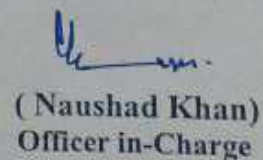 ( Naushad Khan)
Officer in-Charge